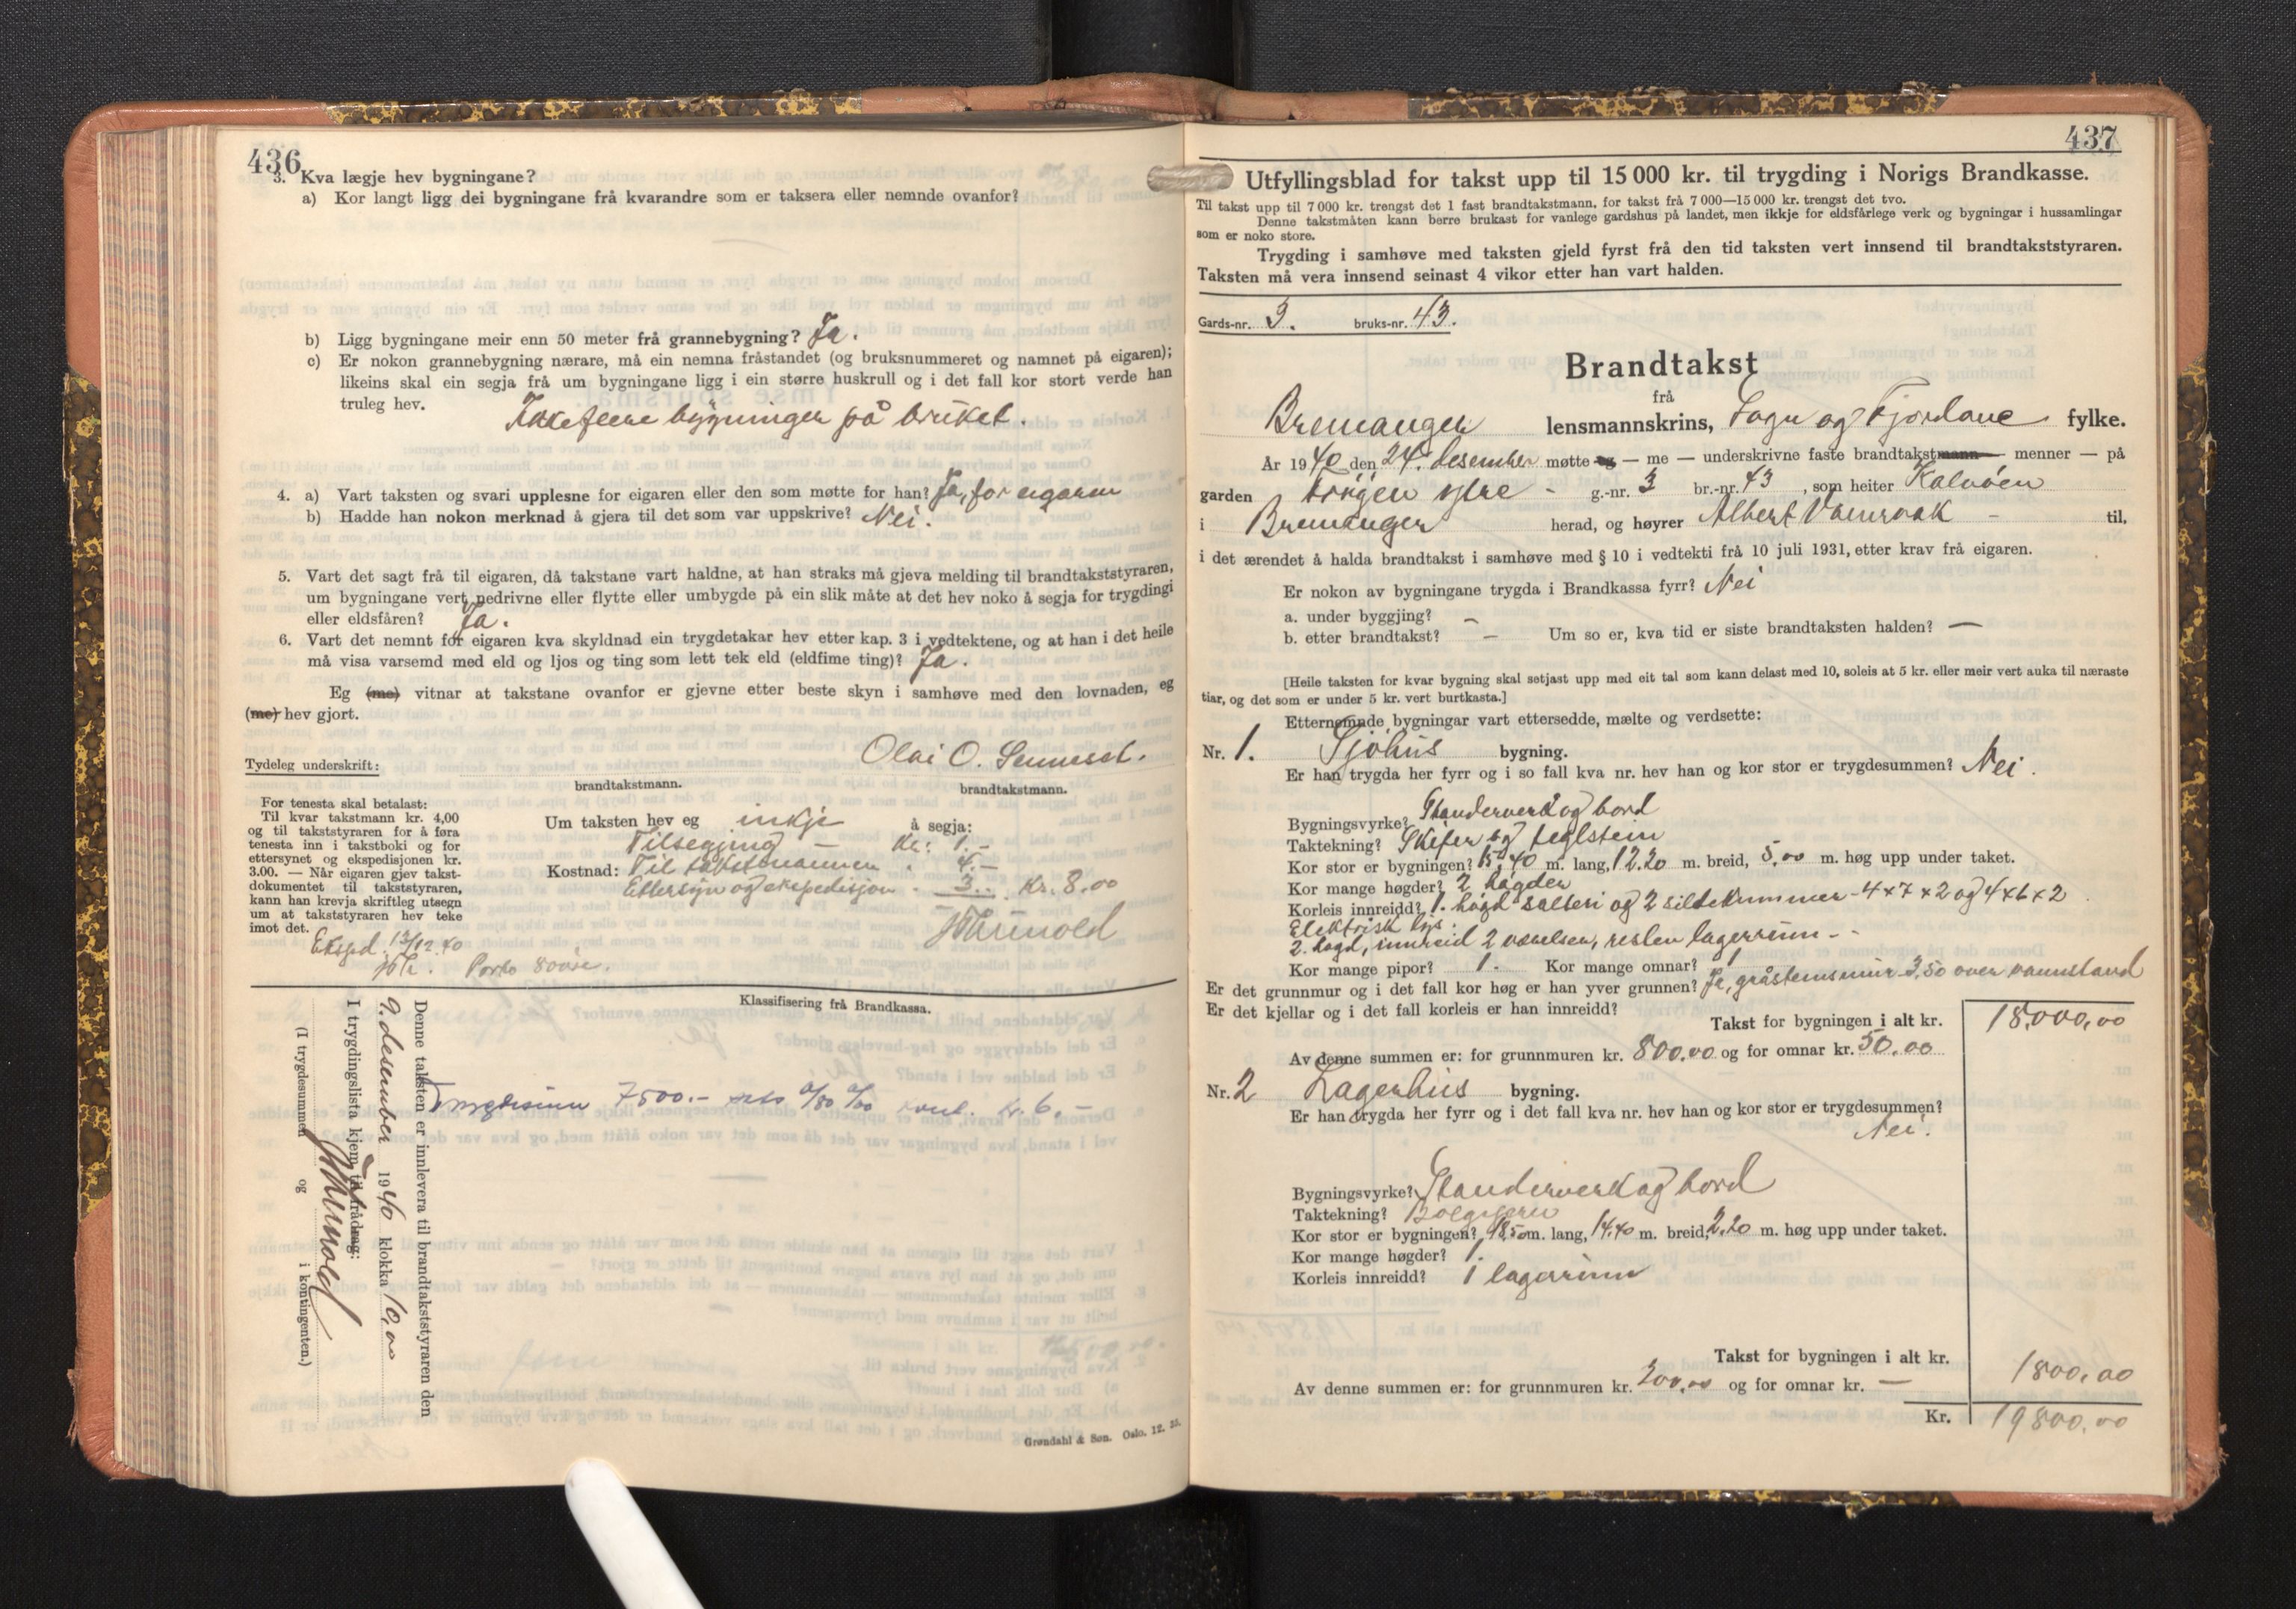 436
3. Kva lægje hev bygningane?
a) Kor langt ligg dei bygningane frå kvarandre som er taksera eller nemnde ovanfor?
b) Ligg bygningane meir enn 50 meter frå grannebygning? Ja.
c) Er nokon grannebygning nærare, må ein nemna fråstandet (og bruksnummeret og namnet på eigaren);
likeins skal ein segja frå um bygningane ligg i ein større huskrull og i det fall kor stort verde han
truleg hev.
Ikke flere bygninger på bruket.
4. a) Vart taksten og svari upplesne for eigaren eller den som møtte for han? Ja, for eigaren
b) Hadde han nokon merknad å gjera til det som var uppskrive? Nei.
5. Vart det sagt frå til eigaren, då takstane vart haldne, at han straks må gjeva melding til brandtakststyraren,
um bygningane vert nedrivne eller flytte eller umbygde på ein slik måte at det hev noko å segja for trygdingi
eller eldsfåren? Ja.
6. Vart det nemnt for eigaren kva skyldnad ein trygdetakar hev etter kap. 3 i vedtektene, og at han i det heile
må visa varsemd med eld og ljos og ting som lett tek eld (eldfime ting)? Ja.
Eg (me) vitnar at takstane ovanfor er gjevne etter beste skyn i samhøve med den lovnaden, eg
(me) hev gjort.
Olai O. Senneset.
Tydeleg underskrift:
brandtakstmann. brandtakstmann.
For tenesta skal betalast:
Til kvar takstmann kr. 4,00
og til takststyraren for å føra
tenesta inn i takstboki og for
ettersynet og ekspedisjonen kr.
3.00. — Når eigaren gjev takst-
dokumentet til takststyraren,
kann han krevja skriftleg utsegn
um at takststyraren hev teke
imot det.
Um taksten hev eg inkje å segja:
Tilsegjing — Kr. 1.-
Kostnad: Til takstmannen . 4.-
Ettersyn og ekspedisjon . 3.. Kr. 8.00
Eksped. 12/12.40
Porto 80 øre.
Klassifisering frå Brandkassa.
Trygdesum 7500.- kr. 6.-
Denne taksten er innlevera til brandtakststyraren den
9. desember 1940 klokka 10,00
I trygdingslista kjem til frådrag:
(I trygdesummen og i kontingenten.)
Grøndahl & Søn. Oslo. 12. 38.
437
Utfyllingsblad for takst upp til 15 000 kr. til trygding i Norigs Brandkasse.
Til takst upp til 7 000 kr. trengst det 1 fast brandtakstmann, for takst frå 7 000—15 000 kr. trengst det tvo.
Denne takstmåten kann berre brukast for vanlege gardshus på landet, men ikkje for eldsfårlege verk og bygningar i hussamlingar
som er noko store.
Trygding i samhøve med taksten gjeld fyrst frå den tid taksten vert innsend til brandtakststyraren.
Taksten må vera innsend seinast 4 vikor etter han vart halden.
Gards-nr. 3. bruks-nr. 43.
Brandtakst
frå
Bremanger lensmannskrins, Sogn og Fjordane fylke.
År 1940 den 24. desember møtte eg — me — underskrivne faste brandtakstmann — menner — på
garden ytre - g.-nr. 3 br.-nr. 43, som heiter Kalvøen
i Bremanger herad, og høyrer Albert - til,
i det ærendet å halda brandtakst i samhøve med § 10 i vedtekti frå 10 juli 1931, etter krav frå eigaren.
Er nokon av bygningane trygda i Brandkassa fyrr? Nei
a. under byggjing? —
b. etter brandtakst? — Um so er, kva tid er siste brandtaksten halden? —
[Heile taksten for kvar bygning skal setjast upp med eit tal som kann delast med 10, soleis at 5 kr. eller meir vert auka til næraste
tiar, og det som er under 5 kr. vert burtkasta.]
Etternemnde bygningar vart ettersedde, mælte og verdsette:
Nr. 1. Sjøhus bygning.
Er han trygda her fyrr og i so fall kva nr. hev han og kor stor er trygdesummen? Nei.
Bygningsvyrke? Standerverk og bord
Taktekning? Skifer og teglstein
Kor stor er bygningen? 15,40 m. lang, 12.20 m. breid, 5.00 m. høg upp under taket.
Kor mange høgder? 2 høgder
Korleis innreidd? 1. høgd salteri og 2 sildekummer - 4 x 7 x 2 og 4 x 6 x 2
Elektrisk lys.
2. høgd, innreid 2 værelser, resten lagerrum - -
Kor mange pipor? 1. Kor mange omnar? 1
Er det grunnmur og i det fall kor høg er han yver grunnen? Ja, gråstensmur 3,50 over vannstand
Er det kjellar og i det fall korleis er han innreidd?
Takst for bygningen i alt kr. 18,000,00
Av denne summen er: for grunnmuren kr. 800.00 og for omnar kr. 50.00
Nr. 2 Lagerhus bygning.
Er han trygda her fyrr og i det fall kva nr. hev han og kor stor er trygdesummen?
Nei.
Bygningsvyrke? Standerverk og bord
Taktekning?
Kor stor er bygningen? 18.50 m. lang, 14.40 m. breid, 2.20 m. høg upp under taket.
Kor mange høgder? 1.
Korleis innreidd? 1 lagerrum
Takst for bygningen i alt kr. 1800,00
Av denne summen er: for grunnmuren kr. 200,00 og for omnar kr. —
Kr. 19800,00